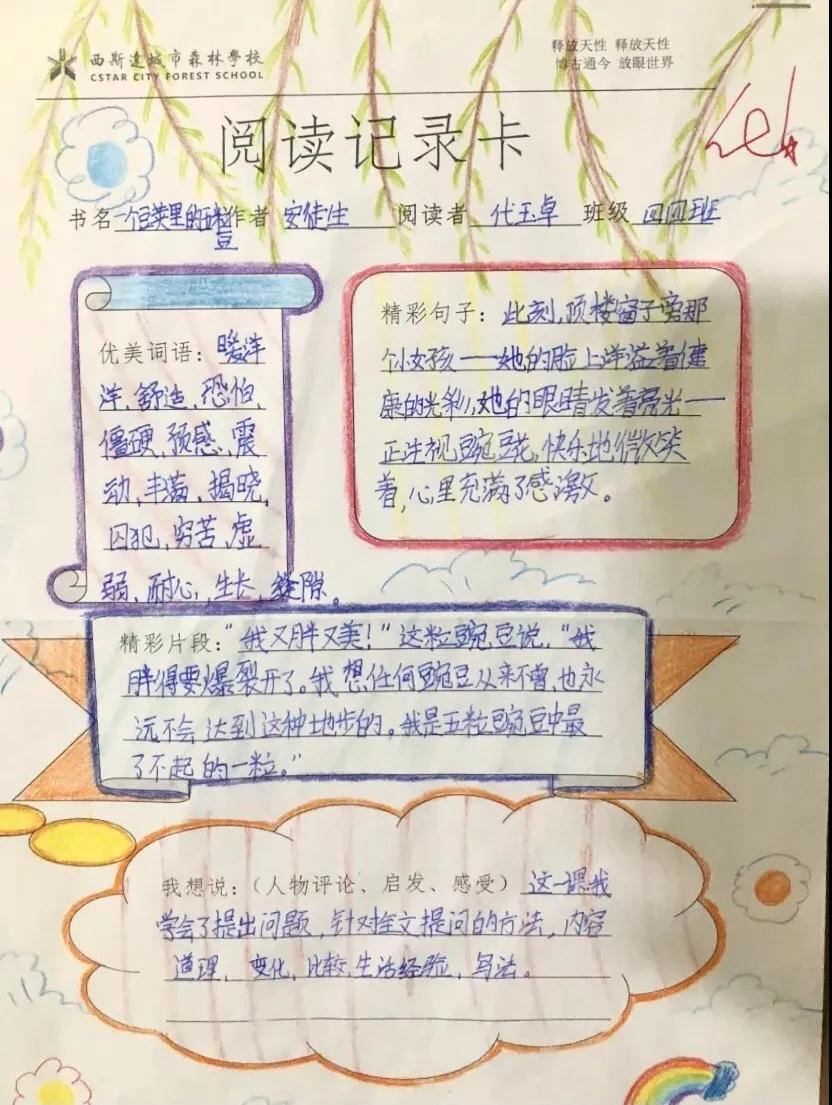 西斯达城市森林學校
CSTAR CITY FOREST SCHOOL
释放天性 释放天性
博古通今 放眼世界
阅读记录卡
书名 一个豆荚里的五粒豆 作者 安徒生 阅读者 代玉卓 班级 四四班
优美词语：暖洋
洋，舒适，恐怕，
僵硬，预感，震
动，丰满，揭晓，
囚犯，穷苦，虚
弱，耐心，生长，缝隙。
精彩句子：此刻，顶楼窗子旁那
个小女孩——她的脸上洋溢着健
康的光彩，她的眼睛发着亮光——
正注视豌豆花，快乐地微笑
着，心里充满了感激。
精彩片段：“我又胖又美！”这粒豌豆说，“我
胖得要爆裂开了。我想任何豌豆从来不曾，也永
远不会达到这种地步的。我是五粒豌豆中最
了不起的一粒。”
我想说：（人物评论、启发、感受）这一课我
学会了提出问题，针对全文提问的方法，内容
道理，变化，比较，生活经验，写法。